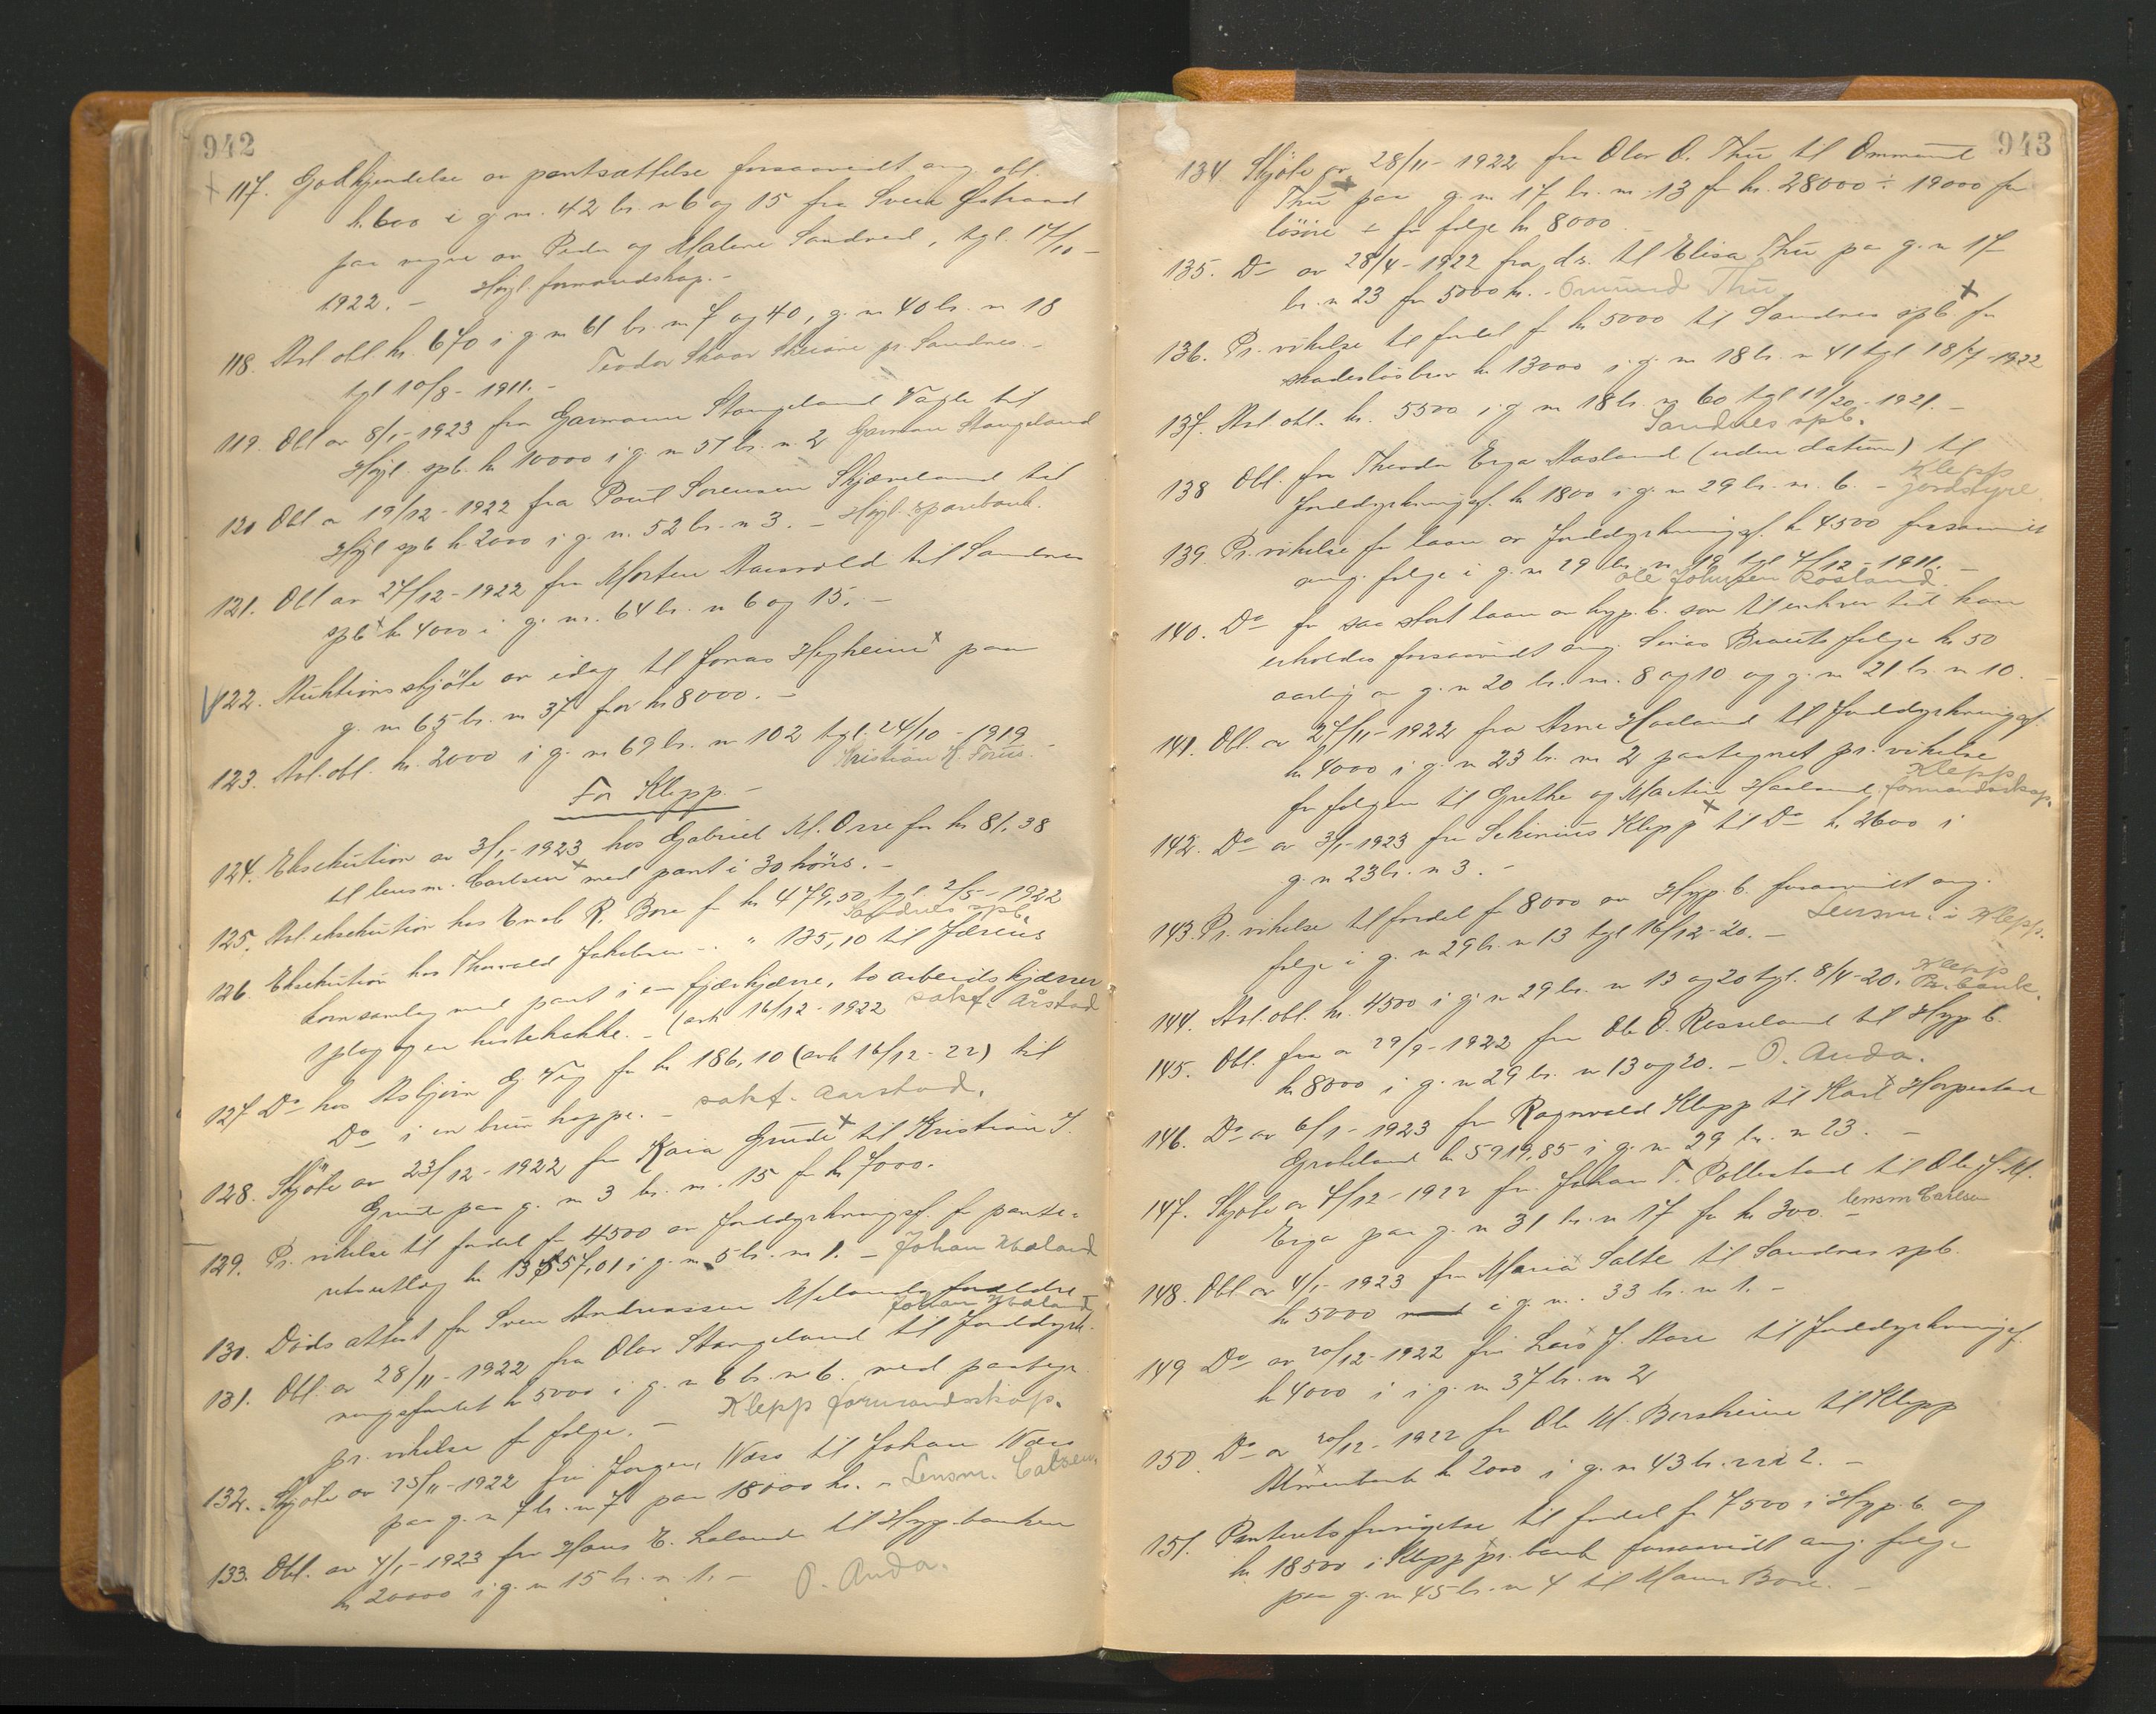 942
117. Godkjendelse av pantsættelse forsaavidt ang. obl.
k. 600 i g. nr. 42 br. n 6 og 15 fra Svein Østraad
paa vegne av Peder og Malene Sandved, tgl. 17/10 -
1922. - Høyl. formandskap. -
118. Avl. obl. kr. 670 i g. nr 61 br. nr 7 og 40, g. nr 40 br. n 18
tgl 10/8 - 1911. - Teodor Skaar pr. Sandnes. -
119. Obl av 8/1 - 1923 fra Gjermann Stangeland Vagle til
Høyl. spb. kr 10000 i g. nr 51 br. n. 2 German Stangeland
120 Obl a 19/12 - 1922 fra Poul Sørensen Skjæveland til
Høyl spb k. 2000 i g. nr. 52 br. n 3. - Høyl. sparebank.
121. Obl av 27/12 - 1922 fra Morten Aarsvold til Sandnes
spb kr 4000 i g. nr. 64 br. n 6 og 15. -
122. Auktionsskjøte av idag til Jonas Hegheim paa
g. nr 65 br. n 37 for kr 8000. -
123. Avl. obl. kr. 2000 i g. nr 69 br. nr 102 tgl. 24/10 - 1919
Kristian K. Forus.
For Klepp. -
124. Eksekution av 3/1 - 1923 hos Gabriel M. Orre for kr 81.38
til lensm. Carlsen med pant i 30 høns. -
125. Avl. eksekution hos Enok R. Bore for kr 479,50 tgl. 2/5 - 1922
Sandnes spb.
126. Eksekution hos Thorvald Jakobsen - . " 135,10 til Jærens
kornsamlag med pant i en fjærkjærre, to arbeidskjærrer
1 plog og en hestehakke. - (avh 16/12 - 1922 sakf. Årstad
127. Do hos Asbjørn G. Vig for kr 186,10 (avh 16/12 - 22) til
Do i en brun hoppe. - sakf. Aarstad.
128. Skjøte av 23/12 - 1922 fra Kaia Grude til Kristian T.
Grude paa g. nr 3 br. nr. 15 for kr 7000.
129. Pr. vikelse til fordel for 4500 av Jorddyrkningsf. for pante-
retsutlæg kr 13557,01 i g. nr 5 br. nr 1. - Johan Mæland
130. Dødsattest for Sven Andreassen Mælands forældre
Johan Mæland
131. Obl. av 28/11 - 1922 fra Olav Stangeland til Jorddyrk-
ningsfondet kr 5000 i g. n 6 br. nr 6. med paategn
pr. vikelse for følge. - Klepp formandsskap.
132. Skjøte av 25/11 - 1922 fra Jørgen Næss til Johan Næss
paa g. n 7 br. n 7 paa 18000 kr. - Lensm. Calsen.
133. Obl. av 4/1 - 1923 fra Hans E. Laland til Hyp. banken
kr 20000 i g. n 15 br. n. 1. - O. Anda.
943
134 Skjøte av 28/11 - 1922 fra Olav O. Thu til Ommund
Thu paa g. nr 17 br. nr. 13 for kr. 28000 ÷ 19000 for
løsøre ÷ for følge kr 8000.
135. Do av 28/4 - 1922 fra ds. til Elisa Thu paa g. n 17
br. n 23 for 5000 kr. - Ommund Thu
136. Pr. vikelse til fordel for kr 5000 til Sandnes spb for
skadesløsbrev kr 13000 i g. nr 18 br. n 41 tgl 18/7 - 1922
137. Avl. obl. kr. 5500 i g nr 18 br. nr 60 tgl 11/20 - 1921. -
Sandnes spb.
138 Obl. fra Theodor Erga Aasland (uden datum) til
Jorddyrkningsf. kr 1800 i g. n 29 br. nr. 6. - Klepp jordstyre.
139. Pr. vikelse for laan av Jorddyrkningsf. kr 4500 forsaavidt
ang. følge i g. nr 29 br. n 19 tgl 4/12 - 1911. -
Ole Johnsen Rosland.
140. Do for saa stort laan av hyp. b. som til enhver tid kan
erholdes forsaavidt ang. Sinas Brauts følge kr 50
aarlig av g. n 20 br. nr. 8 og 10 og g. nr 21 br. n 10. -
141. Obl. av 27/11 - 1922 fra Arne Haaland til Jorddyrkningsf.
kr 4000 i g. n 23 br. nr 2 paategnet pr. vikelse
for følgen til Grethe og Martin Haaland Klepp formandsskap.
142. Do av 3/1 - 1923 fra Sekinius Klepp til Do k. 2600 i
g. n 23 br. n 3. -
143. Pr. vikelse til fordel for 8000 av Hyp. b. forsaavidt ang.
følge i g. n 29 br. n 13 tgl 16/12 - 20. - Lensm. i Klepp.
144. Avl. obl. kr. 4500 i g. n 29 br. n 13 og 20 tgl. 8/4 - 20. Klepp Pr. bank.
145. Obl. fra a 29/9 - 1922 fra Ole O. Risseland til Hyp b.
kr 8000 i g. n 29 br. n 13 og 20. - O. Anda.
146. Do av 6/1 - 1923 fra Ragnvald Klepp til Karl Horpestad
Grøteland kr 5919,85 i g. nr 29 br. n 23. -
147. Skjøte av 4/12 - 1922 fra Johan T. Pollestad til Ole J. M.
Erga paa g. n 31 br. n 17 for kr 300. lensm Carlsen
148. Obl av 4/1 - 1923 fra Maria Salte til Sandnes spb.
kr 5000 i g. n. 33 br. n 1. -
149 Do av 20/12 - 1922 fra Lars J. Aase til Jorddyrkningsf.
kr 4000 i i g. nr 37 br. nr 2
150. Do av 20/12 - 1922 fra Ole M. Borsheim til Klepp
kr 2000 i g. nr 43 br. nr 2. -
151. Panterets frivigelse til fordel for 7500 i Hyp. b. og
kr 18500 i Klepp pr. bank forsaavidt ang. følge
paa g. nr 45 br. nr 4 til Bore. -